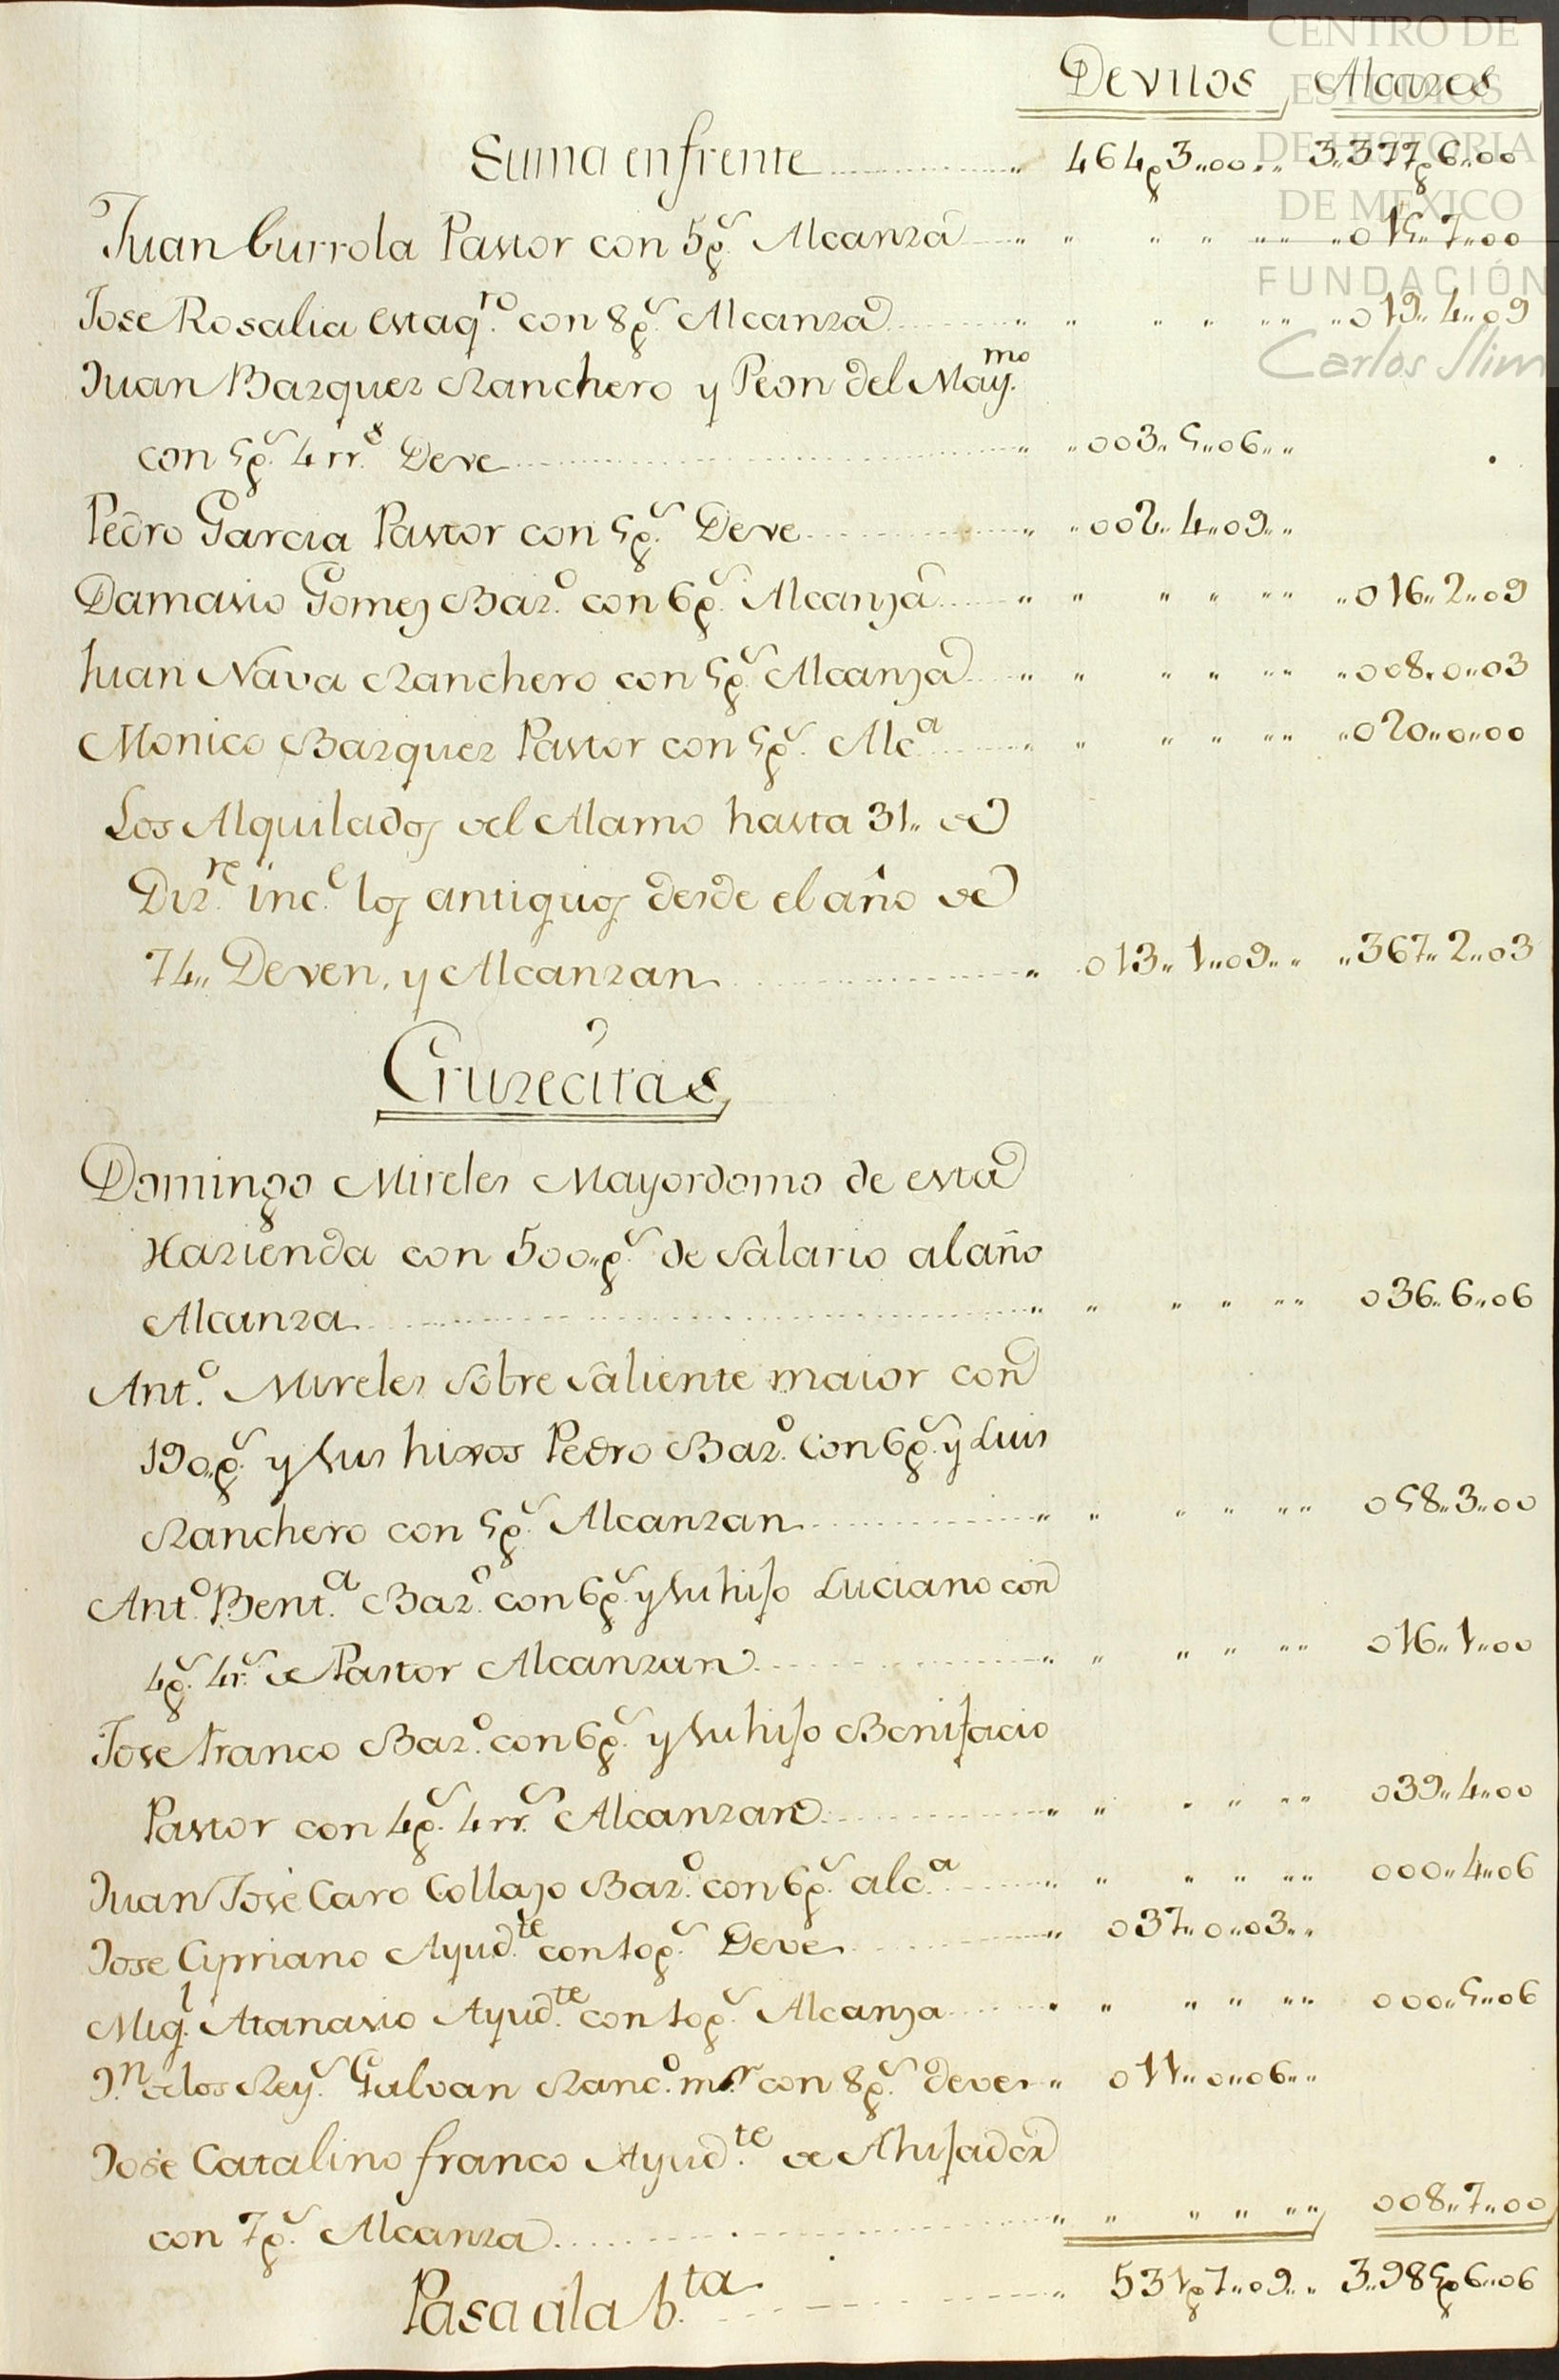 CENTRO DE
ESTUDIOS
DE HISTORIA
DE MEXICO
FUNDACIÓN
Carlos Slim
Devitos Alcazes
Suma enfrente 464p3,,00,, 3,,377p6,,00
Juan Currola Pastor con 5ps. Alcanza ,,015,,7,,00
Jose Rosalia estaqro. con 8ps. Alcanza ,,019,,4,,09
Juan Bazquez Ranchero y Peon del Maymo.
con 5ps. 4 rrs. Deve ,,003,,5,,06,,
Pedro Garcia Pastor con 5ps. Deve ,,002,,4,,09,,
Damasio Gomez Bazo. con 6ps. Alcanza ,,016,,2,,09
Juan Nava Ranchero con 5ps. Alcanza ,,008,,0,,03
Monico Bazquez Pastor con 5ps. Alca ,,020,,0,,00
Los Alquilados del Alamo hasta 31,, de
Dizre. ince. los antiguos desde el año de
74,, Deven, y Alcanzan 013,,1,,09,, ,,367,,2,,03
Cruzecitas
Domingo Mireles Mayordomo de esta
Hazienda con 500,,ps. de Salario al año
Alcanza 036,,6,,06
Anto. Mireles Sobre Saliente maior con
190,,ps. y Sus hixos Pedro Bazo. con 6ps. y Luis
Ranchero con 5ps. Alcanzan 058,,3,,00
Anto. Benta. Bazo. con 6ps. y Su hijo Luciano con
4ps. 4rs. de Pastor Alcanzan 016,,1,,00
Jose Franco Bazo. con 6ps. y Su hijo Bonifacio
Pastor con 4ps. 4rrs. Alcanzan 039,,4,,00
Juan Jose Caro Collazo Bazo. con 6ps. alca. 000,,4,,06
Jose Cipriano Ayudte. con 10ps. Deve 037,,0,,03,,
Migl. Atanasio Ayudte. con 10ps. Alcanza 000,,5,,06
Jn. de los Reys. Galvan Ranco. mr. con 8ps. deve 011,,0,,06,,
Jose Catalino franco Ayudte. de Ahijador
con 7ps. Alcanza 008,,7,,00
Pasa ala bta. 531p7,,09,, 3,,985p6,,06